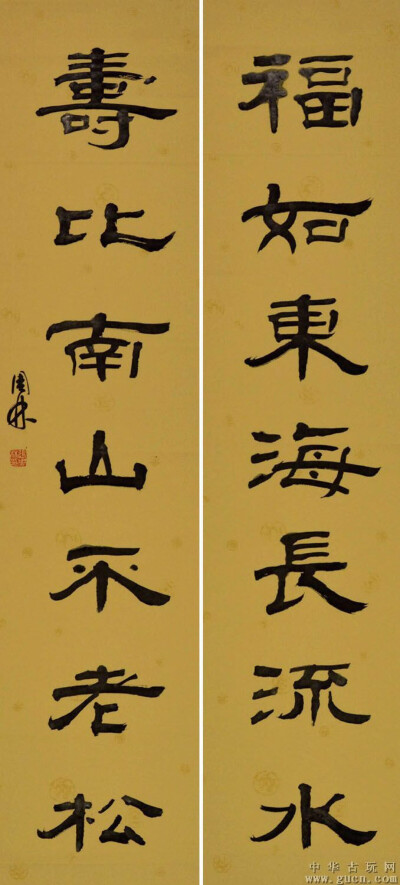 福如東海長流水
壽比南山不老松
中华古玩网
www.gucn.com